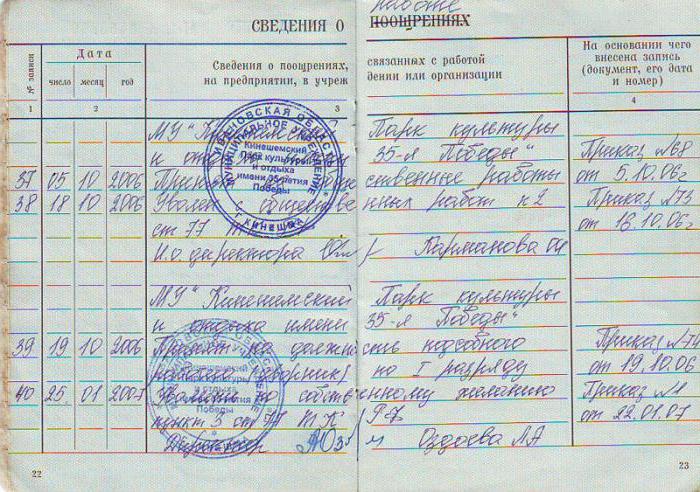 работе
СВЕДЕНИЯ О ПООЩРЕНИЯХ
№ записи
Дата
число месяц год
Сведения о поощрениях, связанных с работой
на предприятии, в учреж дении или организации
На основании чего внесена запись (документ, его дата и номер)
1 2 3 4
МУ "Кинешемский Парк культуры
и отдыха имени 35-я Победы"
37 05 10 2006 ственные работы Приказ №68 от 5.10.06г
38 18 10 2006 Уволен с обществе нных работ п2 Приказ №73 от 18.10.06г
ст 77
И.о. директора Карманова
МУ "Кинешемский Парк культуры
и отдыха имени 35-я Победы"
39 19 10 2006 Принят на должность подсобного Приказ №74
по I разряду от 19.10.06
40 25 01 2007 Уволен по собственному желанию Приказ №1
пункт 3 ст 77 ТК РФ от 22.01.07
Директор Оздоева ЛА
ИВАНОВСКАЯ ОБЛАСТЬ
МУНИЦИПАЛЬНОЕ УЧРЕЖДЕНИЕ
Кинешемский
Парк культуры
и отдыха
имени 35-летия
Победы
г. КИНЕШМА
22
23